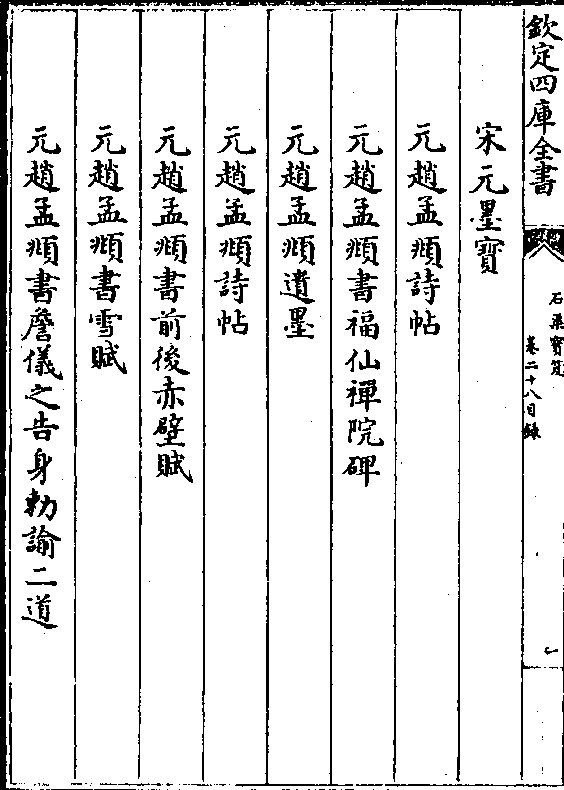 欽定四庫全書
石渠寳笈
卷二十八目錄
宋元墨寶
元趙孟頫詩帖
元趙孟頫書福仙禪院碑
元趙孟頫遺墨
元趙孟頫詩帖
元趙孟頫書前後赤壁賦
元趙孟頫書雪賦
元趙孟頫書詹儀之告身勅諭二道